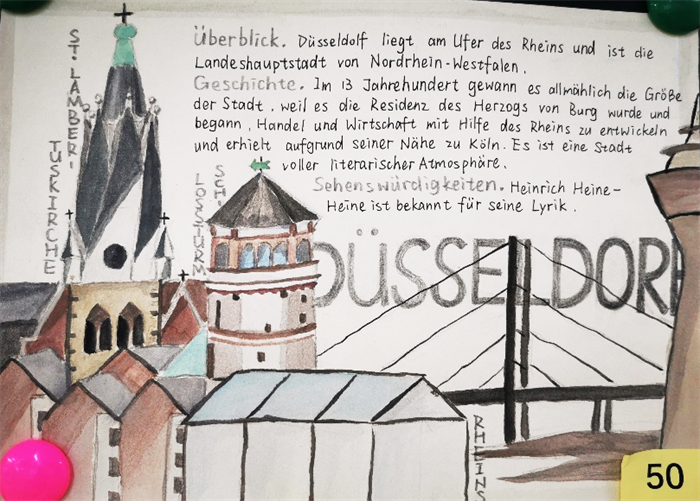 Überblick. Düsseldolf liegt am Ufer des Rheins und ist die
Landeshauptstadt von Nordrhein-Westfalen.
Geschichte. Im 13 Jahrehundert gewann es allmählich die Größe
der Stadt, weil es die Residenz des Herzogs von Burg wurde und
begann, Handel und Wirtschaft mit Hilfe des Rheins zu entwickeln
und erhielt aufgrund seiner Nähe zu Köln. Es ist eine Stadt
voller literarischer Atmosphäre.
Sehenswürdigkeiten. Heinrich Heine-
Heine ist bekannt für seine Lyrik.
ST. LAMBER-
TUSKIRCHE
SCH-
LOSSTURM
DÜSSELDORF
RHEINS
50